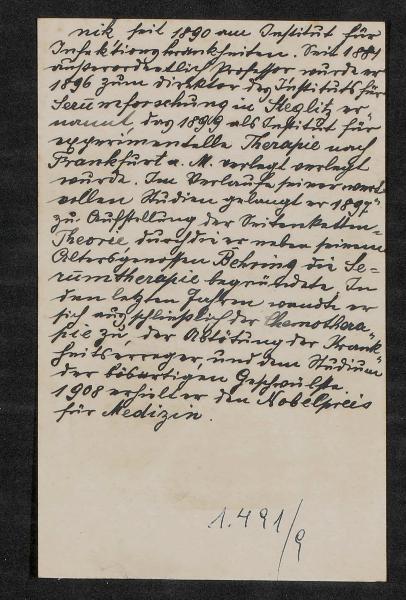 nik seit 1890 am Institut für
Infektionskrankheiten. Seit 1884
außerordentlich Professor wurde er
1896 zum direktor des Instituts für
Serumforschung in Steglitz er-
nannt, das 1899 als Institut für
experimentelle Therapie nach
Frankfurt a. M. verlegt verlegt
wurde. Im Verlaufe seiner wert-
vollen Studien gelangt er 1897
zu Aufstellung der Seitenketten-
Theorie, durch die er neben seinem
Altersgenossen Behring die Se-
rumtherapie begründete. In
den letzten Jahren wandte er
sich ausschließlich der Chemothera-
pie zu, der Abtötung der Krank-
heitserreger, und dem Studium
der bösartigen Geschwülste
1908 erhielt er den Nobelpreis
für Medizin.
1.491/9